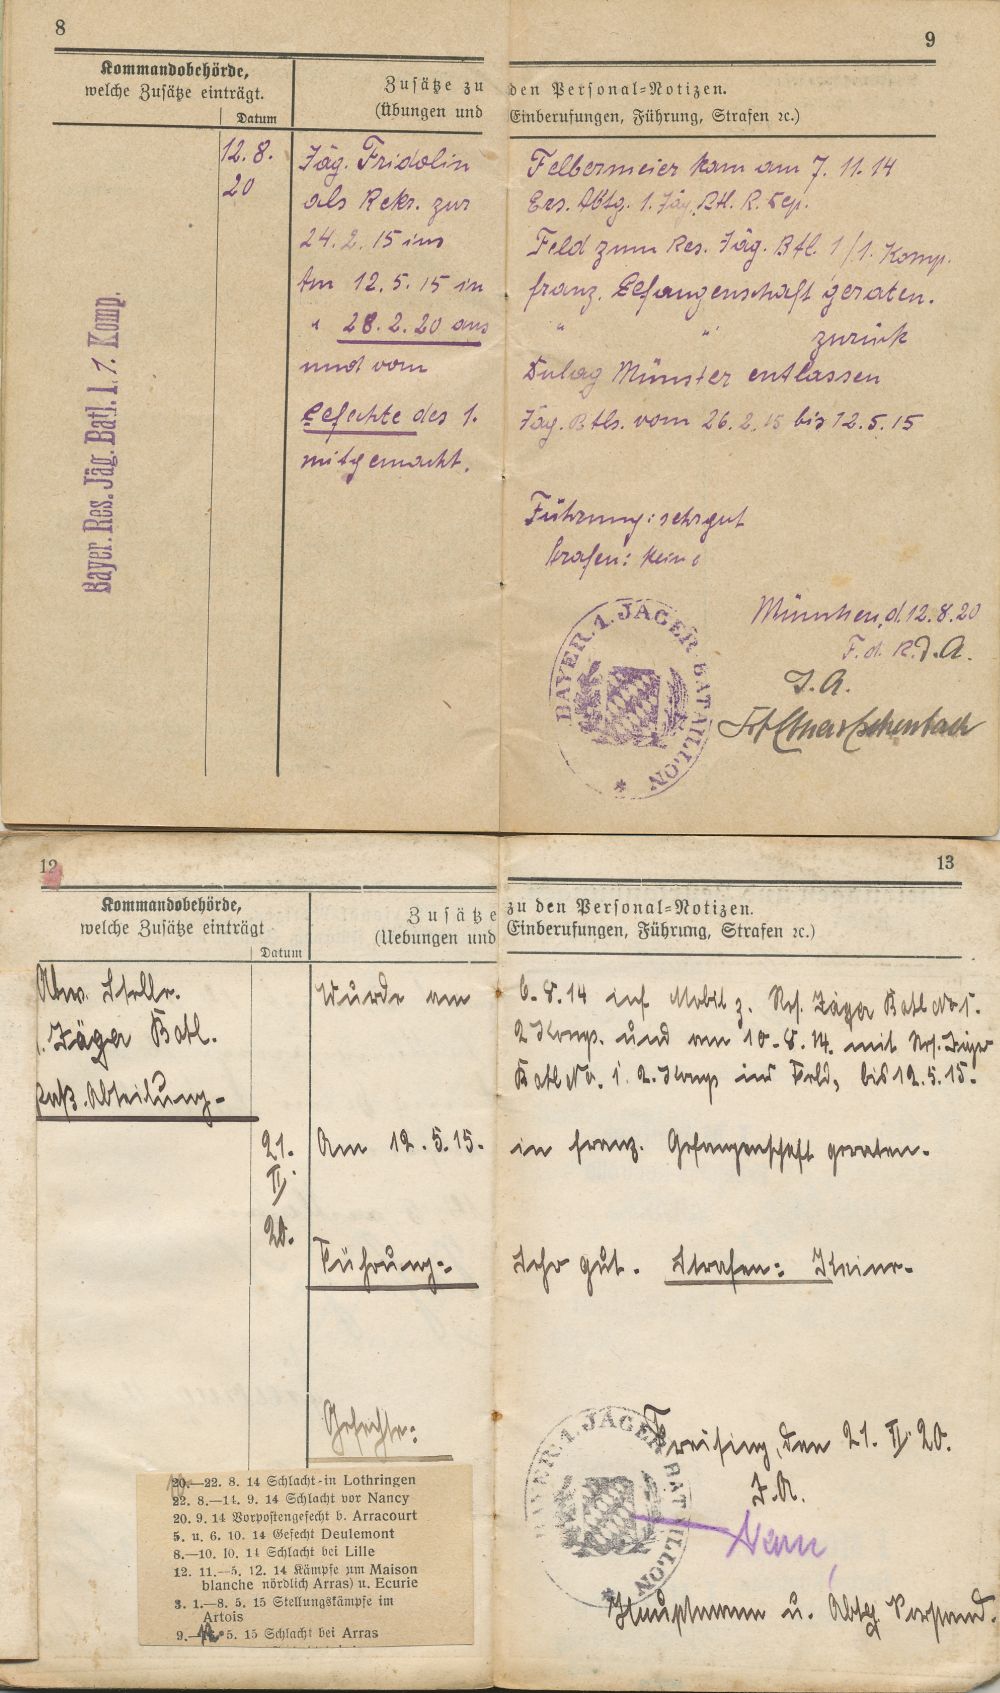 8
9
Kommandobehörde,
welche Zusätze einträgt.
Datum
Zusätze zu den Personal=Notizen.
(Übungen und Einberufungen, Führung, Strafen ꝛc.)
Bayer. Res. Jäg. Batl. 1. 1. Komp.
12. 8.
20
Jäg. Fridolin Felbermeier kam am 7. 11. 14
als Rekr. zur Ers. Abtg. 1. Jäg. Btl. R. Dep.
24. 2. 15 ins Feld zum Res. Jäg. Btl. 1/1. Komp.
Am 12. 5. 15 in franz. Gefangenschaft geraten.
" 28. 2. 20 aus " " zurück
und vom Dulag Münster entlassen
Gefechte des 1. Jäg. Btls. vom 26. 2. 15 bis 12. 5. 15
mitgemacht.
Führung: sehr gut
Strafen: Keine
München, d. 12. 8. 20
F. d. R. d. A.
I. A.
BAYER. 1. JÄGER BATAILLON
12
13
Kommandobehörde,
welche Zusätze einträgt
Datum
Zusätze zu den Personal=Notizen.
(Uebungen und Einberufungen, Führung, Strafen ꝛc.)
Abw. Stelle.
1. Jäger Batl.
Paß. Abteilung.
21.
II.
20.
Wurde am 6. 8. 14 inf. Mobil z. Res. Jäger Batl No 1.
2 Komp. und am 10. 8. 14. mit Res. Jäger
Batl No. 1. 2. Komp ins Feld, bis 12. 5. 15.
Am 12. 5. 15. in franz. Gefangenschaft geraten.
Führung: Sehr gut. Strafen: Keine.
Gefechte:
20.—22. 8. 14 Schlacht in Lothringen
22. 8.—14. 9. 14 Schlacht vor Nancy
20. 9. 14 Vorpostengefecht b. Arracourt
5. u. 6. 10. 14 Gefecht Deulemont
8.—10. 10. 14 Schlacht bei Lille
12. 11.—5. 12. 14 Kämpfe um Maison
blanche nördlich Arras) u. Ecurie
3. 1.—8. 5. 15 Stellungskämpfe im
Artois
9.—12. 5. 15 Schlacht bei Arras
BAYER. 1. JÄGER BATAILLON
Freising, den 21. II. 20.
I. A.
Hauptmann u. Abtg. Vorstand.